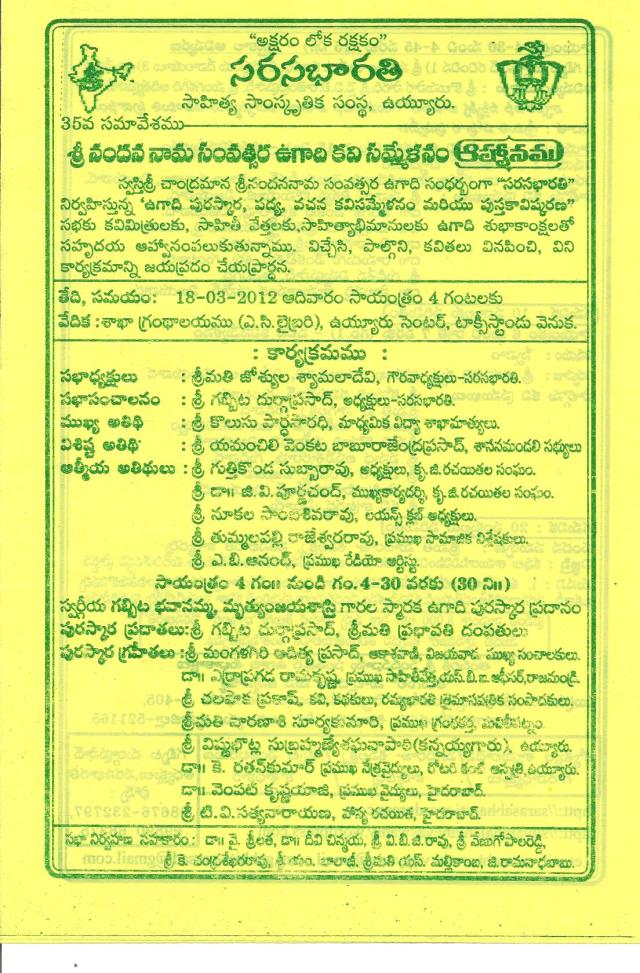 "అక్షరం లోక రక్షకం"
సరసభారతి
సాహిత్య సాంస్కృతిక సంస్థ, ఉయ్యూరు.
35వ సమావేశము
శ్రీ నందన నామ సంవత్సర ఉగాది కవి సమ్మేళనం ఆహ్వానము
స్వస్తిశ్రీ చాంద్రమాన శ్రీనందననామ సంవత్సర ఉగాది సందర్భంగా "సరసభారతి"
నిర్వహిస్తున్న 'ఉగాది పురస్కార, పద్య, వచన కవిసమ్మేళనం మరియు పుస్తకావిష్కరణ"
సభకు కవిమిత్రులకు, సాహితీ వేత్తలకు,సాహిత్యాభిమానులకు ఉగాది శుభాకాంక్షలతో
సహృదయ ఆహ్వానంపలుకుతున్నాము. విచ్చేసి, పాల్గొని, కవితలు వినిపించి, విని
కార్యక్రమాన్ని జయప్రదం చేయప్రార్ధన.
తేది, సమయం: 18-03-2012 ఆదివారం సాయంత్రం 4 గంటలకు
వేదిక :శాఖా గ్రంథాలయము (ఎ.సి.లైబ్రరి), ఉయ్యూరు సెంటర్, టాక్సీస్టాండు వెనుక.
: కార్యక్రమము :
సభాధ్యక్షులు : శ్రీమతి జోశ్యుల శ్యామలాదేవి, గౌరవాధ్యక్షులు-సరసభారతి.
సభాసంచాలనం : శ్రీ గబ్బిట దుర్గాప్రసాద్, అధ్యక్షులు-సరసభారతి.
ముఖ్య అతిథి : శ్రీ కొలుసు పార్ధసారధి, మాధ్యమిక విద్యా శాఖామాత్యులు.
విశిష్ట అతిథి : శ్రీ యమంచిలి వెంకట బాబూరాజేంద్రప్రసాద్, శాసనమండలి సభ్యులు
ఆత్మీయ అతిథులు : శ్రీ గుత్తికొండ సుబ్బారావు, అధ్యక్షులు, కృ.జి.రచయితల సంఘం.
శ్రీ డా॥ జి.వి.పూర్ణచంద్, ముఖ్యకార్యదర్శి, కృ.జి.రచయితల సంఘం.
శ్రీ నూకల సాంబశివరావు, లయన్స్ క్లబ్ అధ్యక్షులు.
శ్రీ తుమ్మలపల్లి రాజేశ్వరరావు, ప్రముఖ సామాజిక విశ్లేషకులు.
శ్రీ ఎ.బి.ఆనంద్, ప్రముఖ రేడియో ఆర్టిస్టు.
సాయంత్రం 4 గం॥ నుండి గం.4-30 వరకు (30 ని॥)
స్వర్గీయ గబ్బిట భవానమ్మ, మృత్యుంజయశాస్త్రి గారల స్మారక ఉగాది పురస్కార ప్రదానం
పురస్కార ప్రదాతలు:శ్రీ గబ్బిట దుర్గాప్రసాద్, శ్రీమతి ప్రభావతి దంపతులు
పురస్కార గ్రహీతలు:శ్రీ మంగళగిరి ఆదిత్య ప్రసాద్, ఆకాశవాణి, విజయవాడ ముఖ్య సంచాలకులు.
డా॥ ఎర్రాప్రగడ రామకృష్ణ, ప్రముఖ సాహితీవేత్త,యస్.బి.ఐ.ఆఫీసర్,రాజమండ్రి.
శ్రీ చలపాక ప్రకాష్, కవి, కథకులు, రమ్యభారతి త్రైమాసపత్రిక సంపాదకులు.
శ్రీమతి వారణాశి సూర్యకుమారి, ప్రముఖ గ్రంథకర్త, మచిలీపట్నం.
శ్రీ విష్ణుభొట్ల సుబ్రహ్మణ్యేశఘనాపాఠి(కన్నయ్యగారు), ఉయ్యూరు.
డా॥ కె. రతన్‌కుమార్ ప్రముఖ నేత్రవైద్యులు, రోటరి కంటి ఆస్పత్రి,ఉయ్యూరు.
డా॥ వెంపటి కృష్ణయాజి, ప్రముఖ వైద్యులు, హైదరాబాద్.
శ్రీ టి.వి.సత్యనారాయణ, హాస్య రచయిత, హైదరాబాద్.
సభా నిర్వహణ సహకారం: డా॥ వై. శ్రీలత, డా॥ దీవి చిన్మయ, శ్రీ వి.బి.జి.రావు, శ్రీ వేణుగోపాలరెడ్డి,
శ్రీ కె. చంద్రశేఖరరావు, శ్రీ యం. బాలాజీ, శ్రీమతి యస్. మల్లికాంబ, జి.రామనాధబాబు.